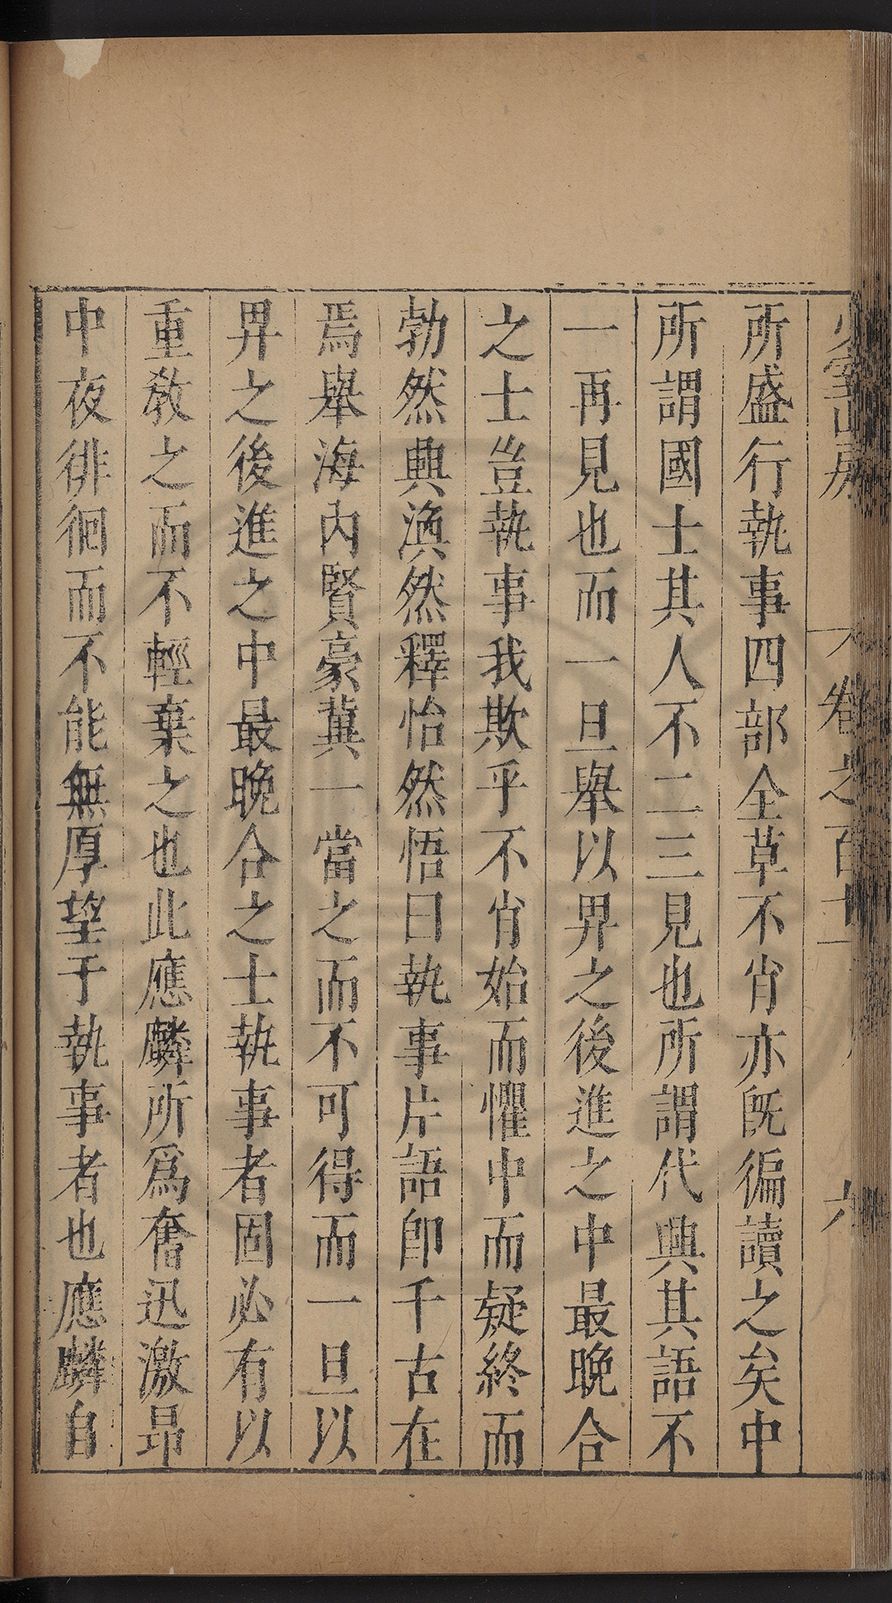 少室山房
卷之百十一
六
所盛行執事四部全草不肖亦旣徧讀之矣中
所謂國士其人不二三見也所謂代興其語不
一再見也而一旦舉以畀之後進之中最晚合
之士豈執事我欺乎不肖始而懼中而疑終而
勃然興渙然釋怡然悟曰執事片語卽千古在
焉舉海內賢豪冀一當之而不可得而一旦以
畀之後進之中最晚合之士執事者固必有以
重敎之而不輕棄之也此應麟所爲奮迅激昻
中夜徘徊而不能無厚望于執事者也應麟自